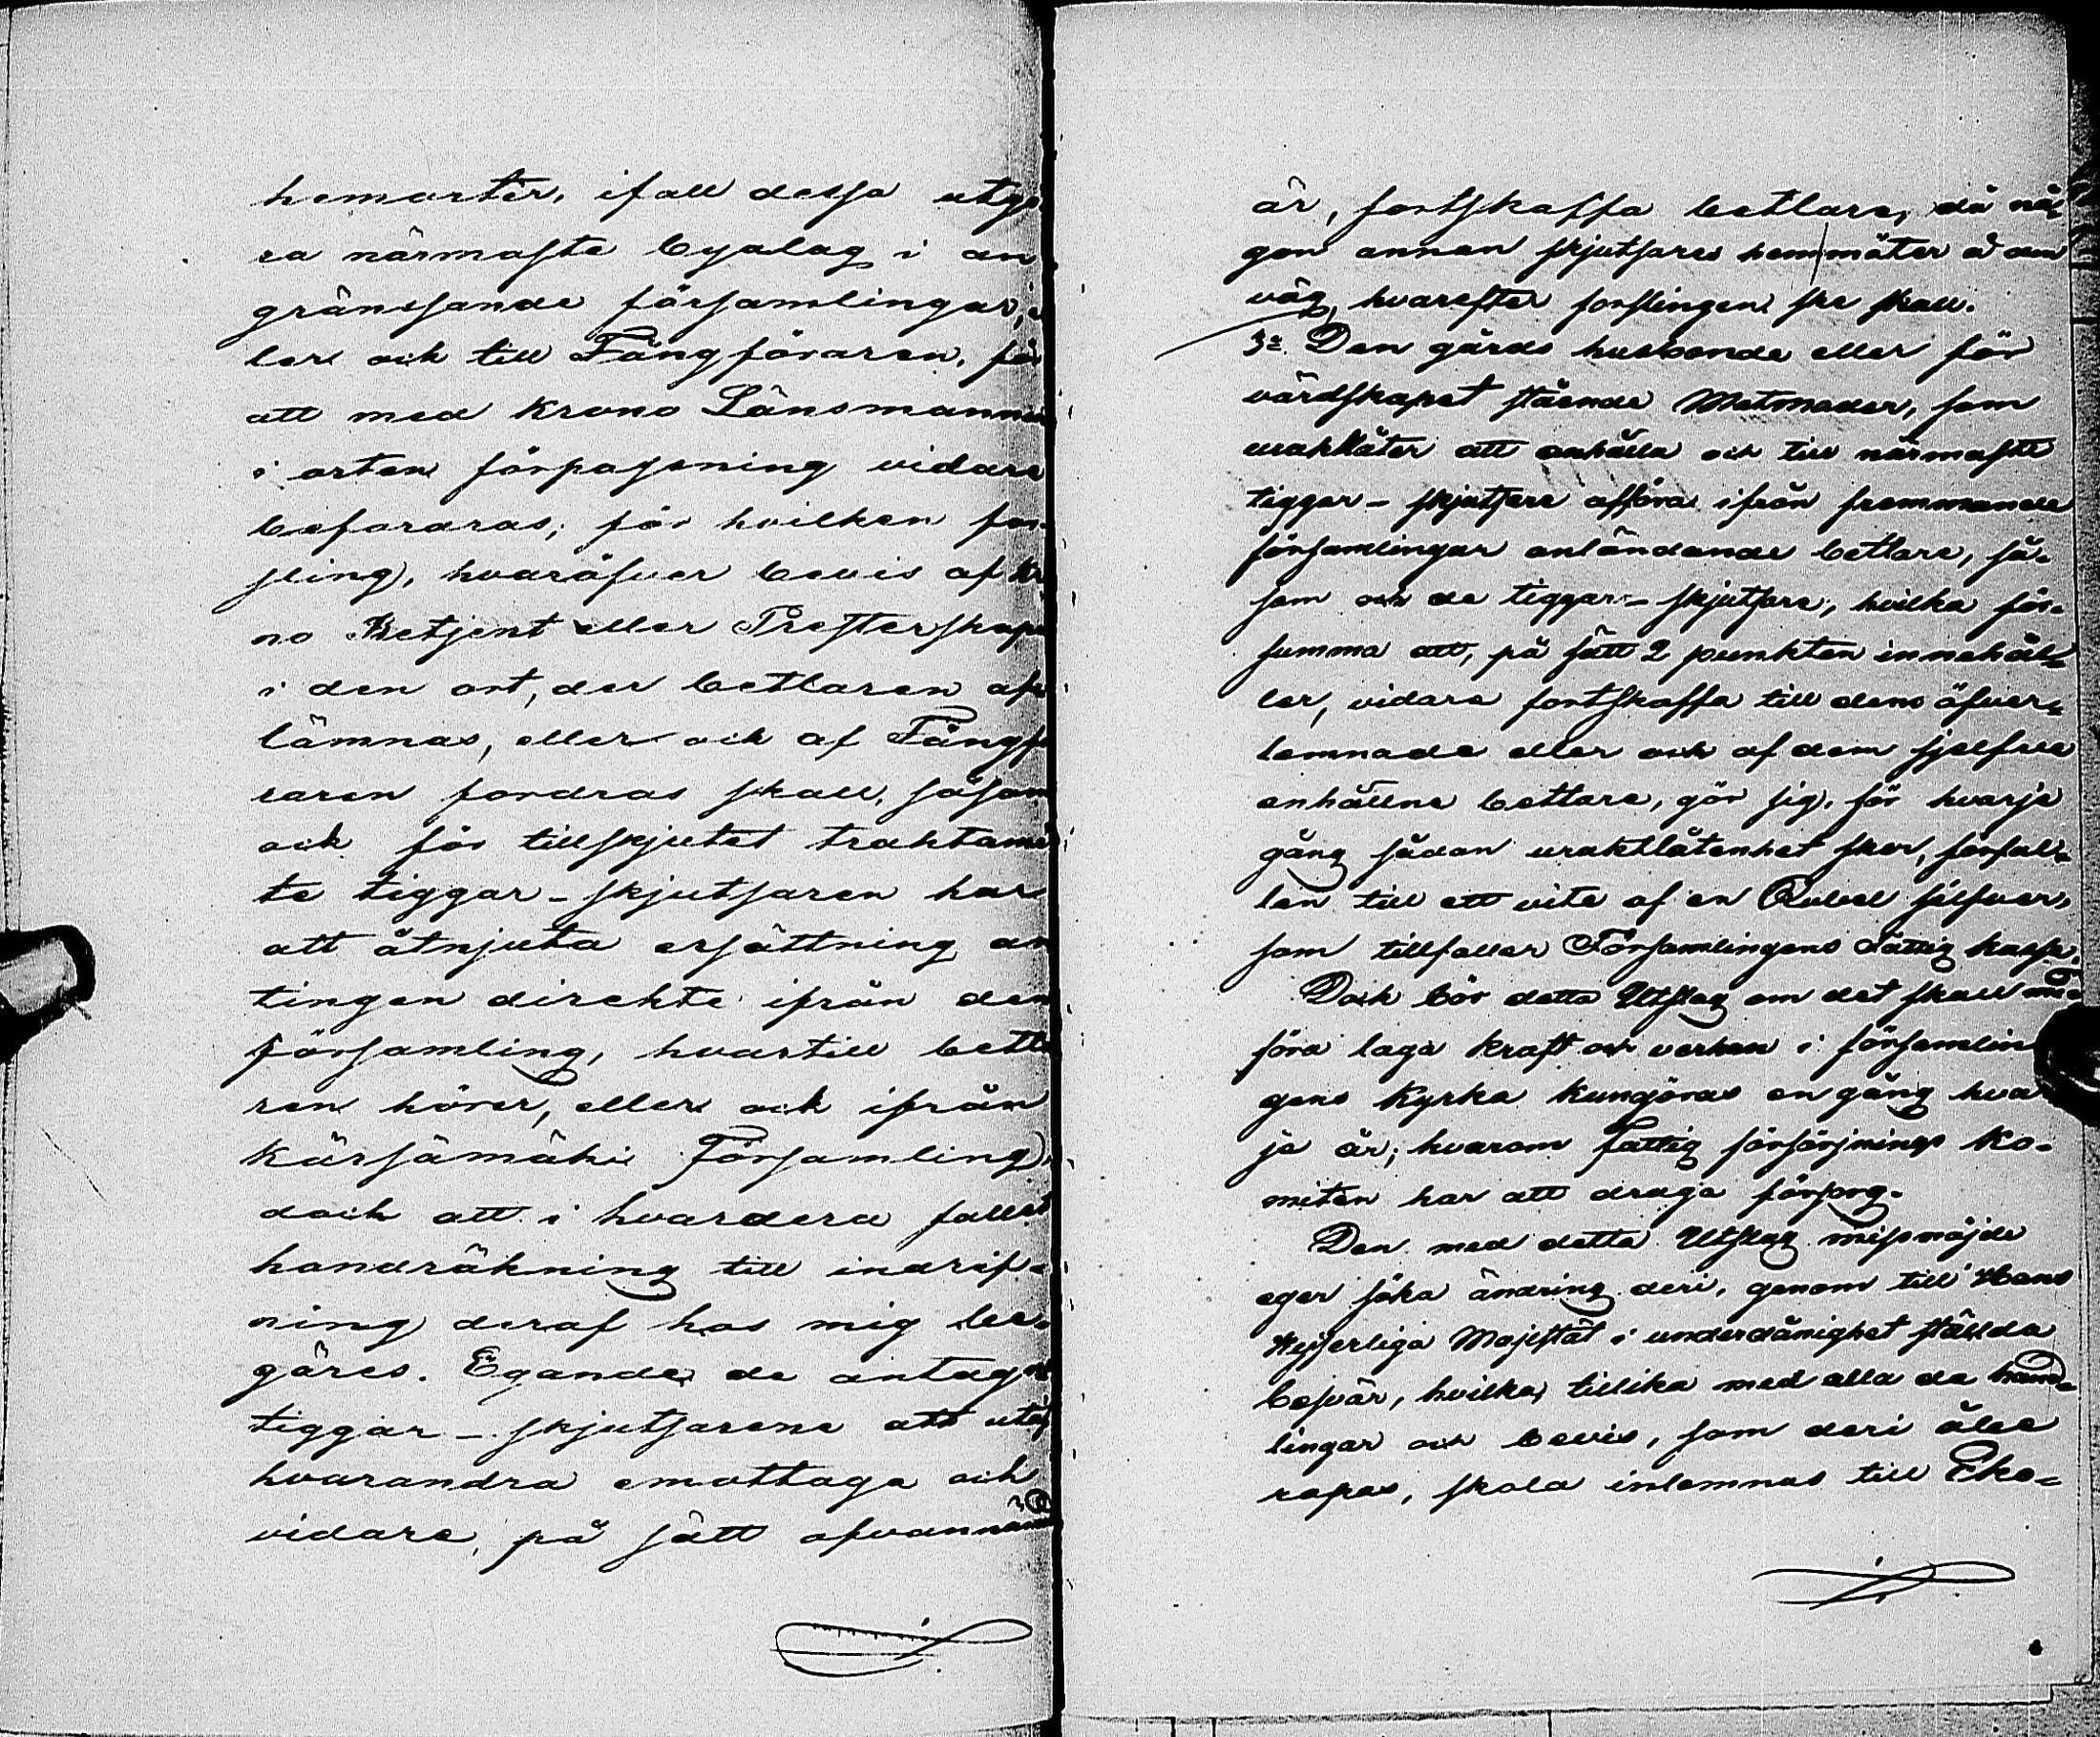 hemorter, ifall dessa utgö
ra närmaste byalag i an
gränsande församlingar, el
ler och till Fångföraren, för
att med Krono Länsmannen
i orten förpassning vidare
befordras; för hvilken for-
sling, hvaröfver bevis af Kro
no Betjent eller Presterskape
i den ort, der betlaren af
lämnas, eller och af Fångfö
raren fordras skall, såsom
och för tillskjutet traktame
te tiggar-skjutsaren har
att åtnjuta ersättning an
tingen direkte ifrån den
församling, hvartill betla
ren hörer, eller och ifrån
Kärsämäki Församling,
dock att i hvardera fallet
handräkning till indrif-
ning deraf hos mig be-
gäres. Egande de antagne
tiggar-skjutsarene att utaf
hvarandra emottaga och
vidare, på sätt ofvannämdt
är, fortskaffa betlare, då nå-
gon annan skjutsares hemmäter å den
väg, hvarefter forslingen ske skall.
3o. Den gårds husbonde eller för
värdskapet stående Matmoder, som
uraktlåter att anhålla och till närmaste
tiggar-skjutsare afföra ifrån fremmande
församlingar anländande betlare, så-
som och de tiggar-skjutsare, hvilka för-
summa att, på sätt 2 punkten innehål-
ler, vidare fortskaffa till dem öfver-
lemnade eller och af dem sjelfve
anhållne betlare, gör sig, för hvarje
gång sådan uraktlåtenhet sker, förfal-
len till ett vite af en Rubel silfver,
som tillfaller Församlingens Fattig kassa.
Dock bör detta Utslag om det skall med-
föra laga kraft och verkan i församlin
gens Kyrka kungöras en gång hvar
je år; hvarom Fattig försörjnings Ko-
miten har att draga försorg.
Den med detta Utslag missnöjde
eger söka ändring deri, genom till Hans
Kejserliga Majestät i underdånighet stälda
besvär, hvilka, tillika med alla de hand-
lingar och bevis, som deri åbe
ropas, skola inlemnas till Eko-